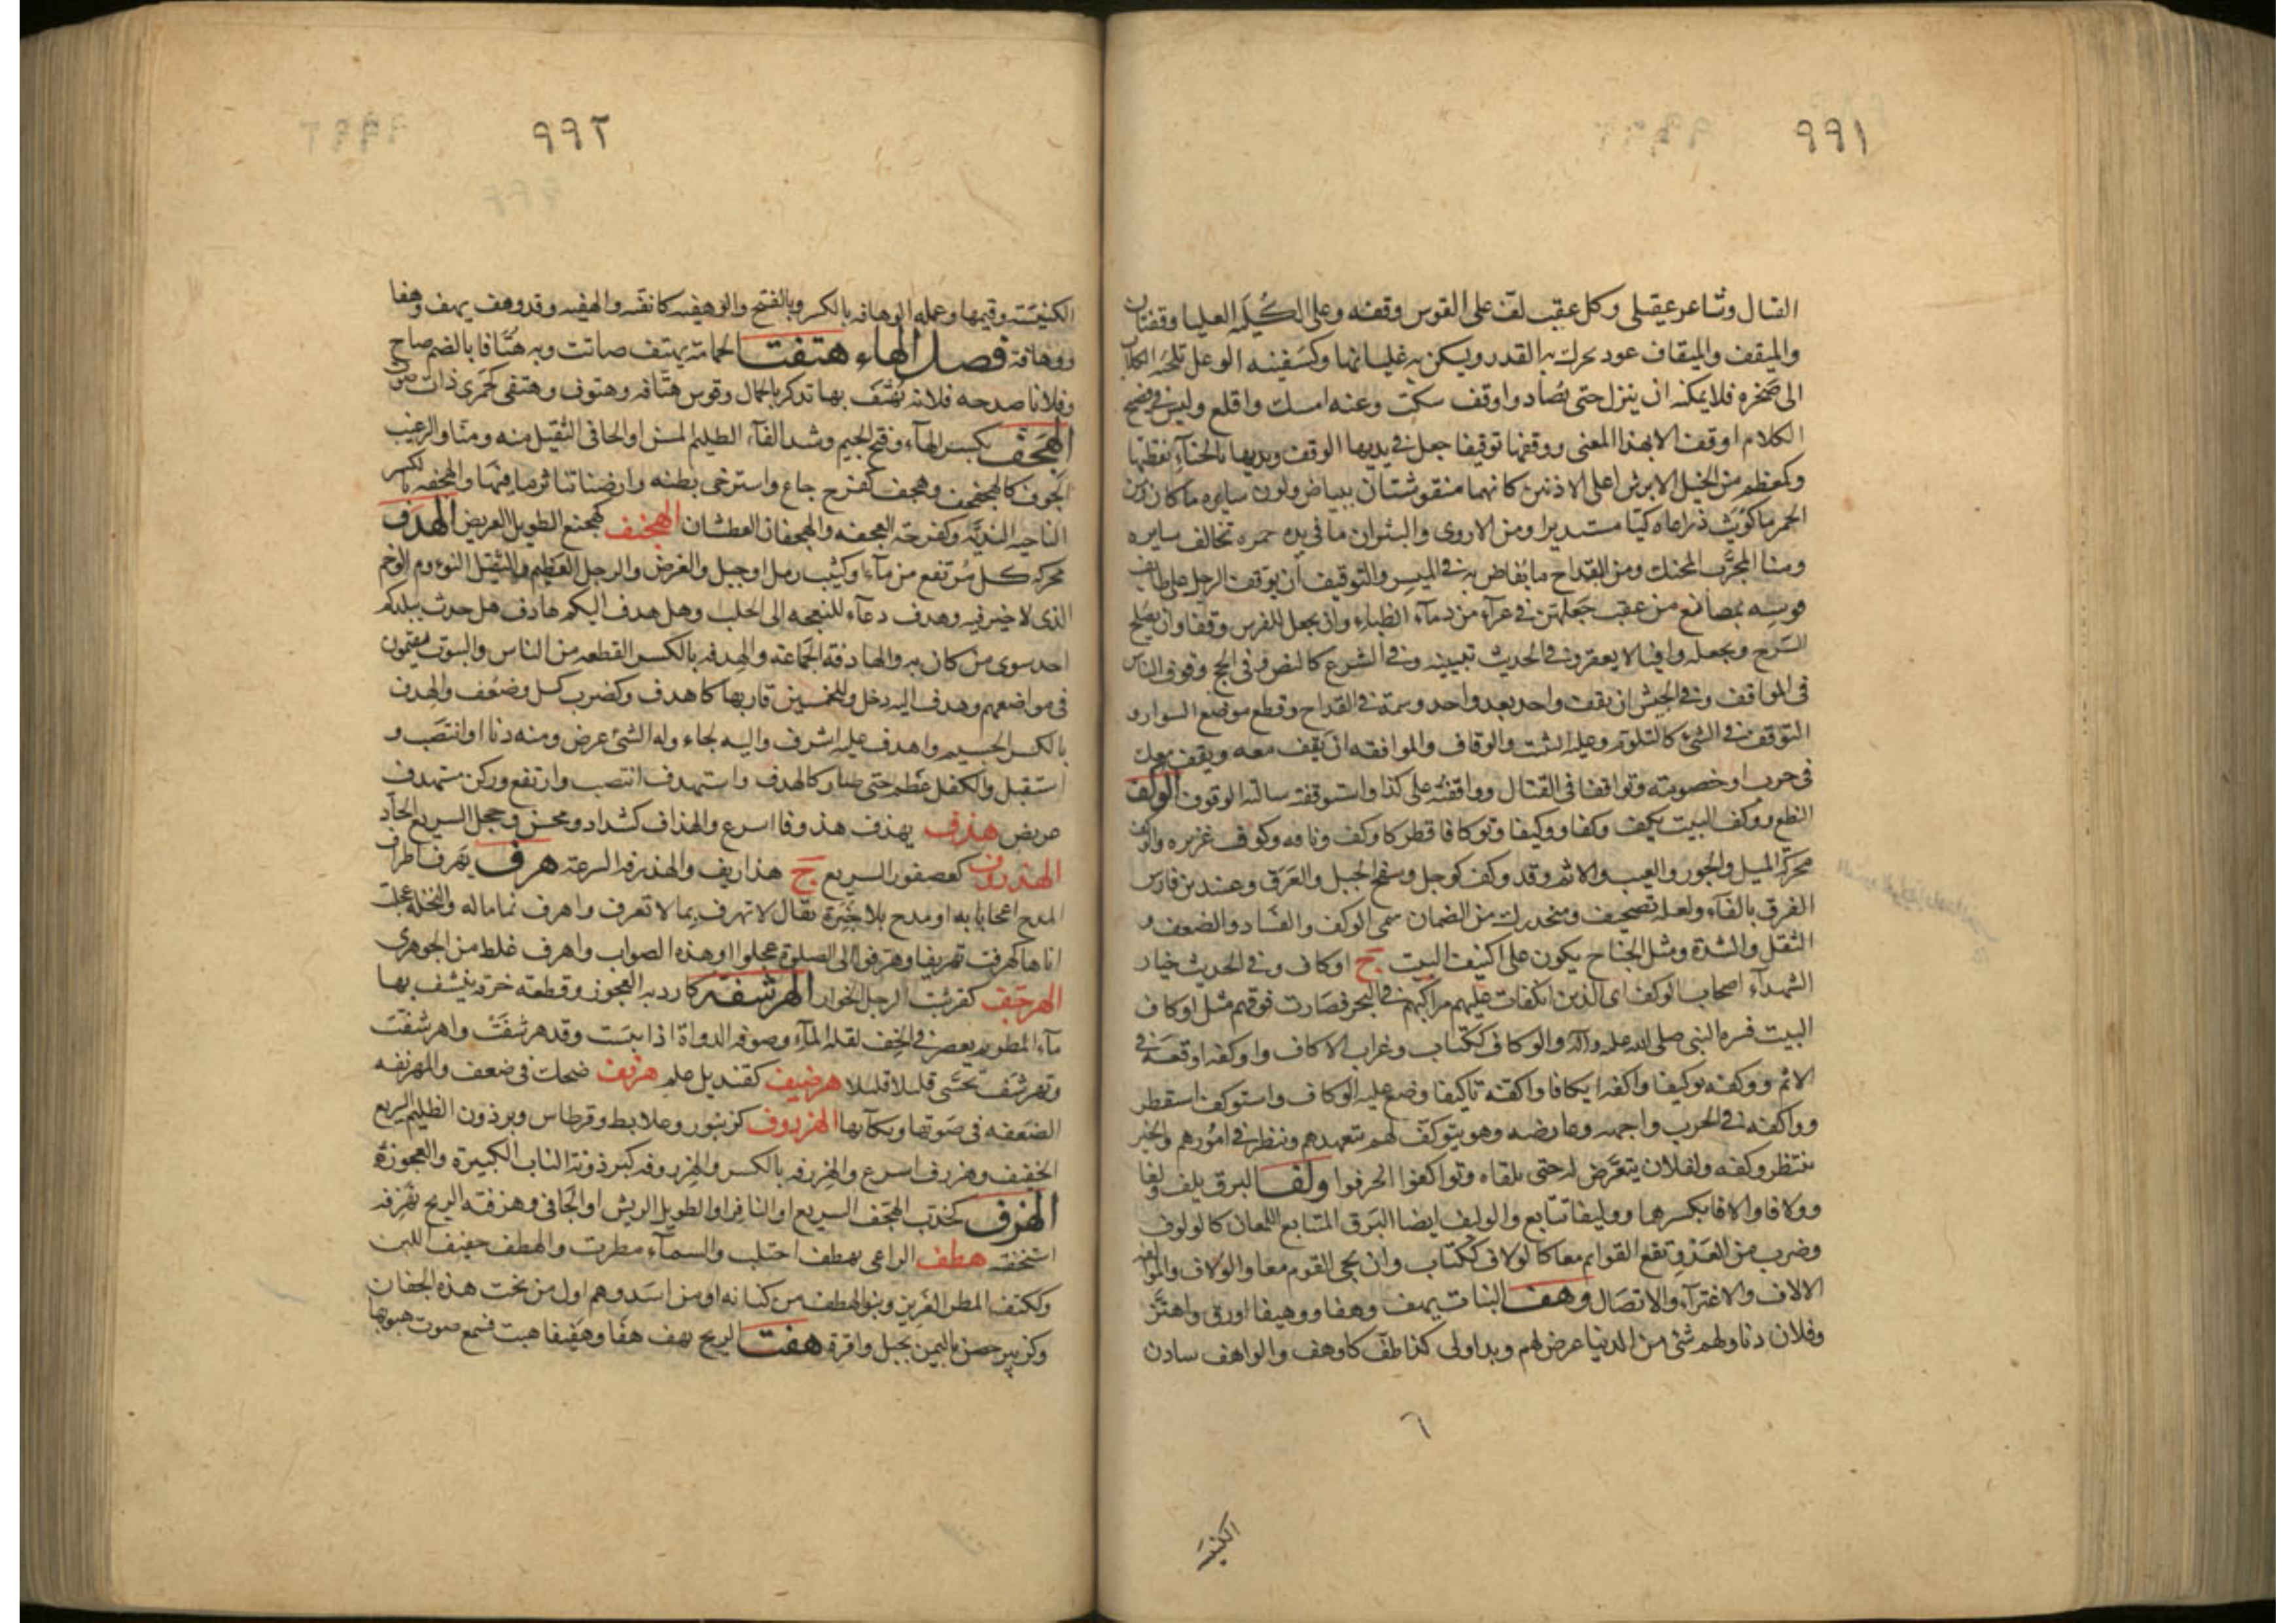 ٩٩١
القتال وشاعر عقيلى وكل عقب لفّ على القوس وقفه وعلى الكُليَه العليا وقفتان
والميقف والميقاف عود يحرك به القدر ويسكن به غليانها وكسفينه الوعل تلجئه الكلاب
الى صخره فلا يمكنه ان ينزل حتى يُصاد واوقف سكت وعنه امسك واقلع وليس فى فصيح
الكلام اوقف الا بهذا المعنى ووقفها توقيفا جعل فى يديها الوقف ويديها بالحناء نقطها
وكمعظم من الخيل الابرش اعلى الاذنين كانهما منقوشتان ببياض ولون سايره ما كان ومن
الحمر ما كويت ذراعاه كيّا مستديرا ومن الاروى والثيران ما فى يده حمره تخالف سايره
ومنا المجرّب المحنك ومن القداح ما يُفاض به فى الميسر والتوقيف ان يوقف الرجل على طايف
قوسه بمضائع من عقب جعلهن فى غراء من دماء الظباء وان يجعل للفرس وقفا وان يصلح
السرج ويجعله واقيا لا يعقر وفى الحديث تبيينه وفى الشرع كالنص وفى الحج وقوف الناس
فى المواقف وفى الجيش ان يقف واحد بعد واحد وسمة فى القداح وقطع موضع السوار و
التوقف فى الشئ كالتلوّم وعليه التثبت والوقاف والمواقفه ان يقف معه ويقف معك
فى حرب او خصومته وتواقفا فى القتال وواقفته على كذا واستوقفته سالته الوقوف الوكف
النطع ووكف البيت يكف وكفا ووكيفا وتوكافا قطر كاوكف وناقه وكوف غزيره والوكف
محركة الميل والجور والعيب والاثم وقد وكف كوجل وسفح الجبل والعَرَق وعند بن فارس
الفرق بالفاء ولعله تصحيف ومنحدرك من الضمان سمى الوكف والفساد والضعف و
الثقل والشدة ومثل الجناح يكون على اكنيف البيت ج اوكاف وفى الحديث خيار
الشهداء اصحاب الوكف اى الذين انكفات عليهم مراكبهم فى البحر فصارت فوقهم مثل اوكاف
البيت فسره النبى صلى الله عليه وآله والوكاف ككتاب وغراب الاكاف واوكفه اوقعه فى
الاثم ووكفه توكيفا واكفه ايكافا واكفته تاكيفا وضع عليه الوكاف واستوكف استقطر
وواكفه فى الحرب واجهه وعارضه وهو يتوكف لهم يتعهدهم وينظر فى امورهم والخبر
ينتظر وكفه ولفلان يتعرّض له حتى يلقاه وتواكفوا انحرفوا ولف البرق يلف ولفا
وولافا والافا بكسرها ووليفا تتابع والوليف ايضا البرق المتتابع اللمعان كالولوف
وضرب من العَدْو تقع القوائم معا كالولاف ككتاب وان يجى القوم معا والولاف والموالفه
الالاف والاغتراء والاتصال وهف النبات يهف وهفا ووهيفا اورق واهتزّ
وفلان دنا ولهم شئ من الدنيا عرض لهم وبدا ولى كذا طفّ كاوهف والواهف سادن
٦
الكنيسه
٩٩٢
الكنيسه وقيمها وعمله الوهافه بالكسر وبالفتح والوهفيه كاثفيه والهفيه وقد وهف يهف وهفا
ووهافة فصل الهاء هتفت الحمامة تهتف صاتت وبه هُتَافا بالضم صاح
وفلانا مدحه فلانه يُهتف بها تذكر بالجمال وقوس هتّافه وهتوف وهتفى كجمزى ذات صوت
الهجَفّ بكسر الهاء وفتح الجيم وشد الفاء الظليم المسن او الجافى الثقيل منه ومنا والرغيب
الجوف كالهجفجف وهجف كفرح جاع واسترخى بطنه وارضنا تناثر ما فيها والهجفه بالكسر
الناحيه النديّه وكفرحه العجفه والهجفان العطشان الهجنف كهجنع الطويل العريض الهدف
محركه كل مُرتفع من بناء او كثيب رمل او جبل والغرض والرجل العظيم والثقيل النوءوم الوخم
الذى لا خير فيه وهدف دعاء للنعجه الى الحلب وهل هدف اليكم هادف هل حدث ببلدكم
احد سوى من كان به والهادفة الجماعة والهدفه بالكسر القطعه من الناس والبيوت يقيمون
فى مواضعهم وهدف اليه دخل وللخمسين قاربها كاهدف وكضرب كسل وضعُف والهدف
بالكسر الجسيم واهدف عليه اشرف واليه لجاء وله الشئ عرض ومنه دنا او انتصب و
استقبل والكفل عظم حتى صار كالهدف واستهدف انتصب وارتفع وركن مستهدف
عريض هذف يهذف هذوفا اسرع والهذاف كشداد ومحسن وعجل السريع الحاد
الهذروف كعصفور السريع ج هذاريف والهذرفه السرعة هرف يهرف اطرا فى
المدح اعجابا به او مدح بلا خبرة يقال لا تهرف بما لا تعرف واهرف نما ماله والنخلة عجلت
اتاءها كهرفت تهريفا وهرفوا الى الصلوة عجلوا او هذه الصواب واهرف غلط من الجوهرى
الهرجف كقرشب الرجل الخوار الهرشفه كاردبه العجوز وقطعة خرقه ينشف بها
ماء المطر ثم يعصر فى الخف لقله الماء وصوفه الدواة اذا يبست وقد هرشفت واهرشفت
وتهرشف تحسّى قليلا قليلا هرصيف كقنديل علم هرنف ضحك فى ضعف والمهرنفه
الضعفه فى صوتها وبكائها الهزروف كزنبور وعلابط وقرطاس وبرذون الظليم السريع
الخفيف وهزرف اسرع والهزرفه بالكسر والهزروفه كبرذونة الناب الكبيرة والعجوز
الهزف كخدب الهجف السريع او النافر او الطويل الريش او الجافى وهزفته الريح تهزفه
استخفته هطف الراعى يهطف احتلب والسماء مطرت والهطف حفيف اللبن
وككتف المطر الغزير وبنو الهطف من كنانه او من اسد وهم اول من نحت هذه الجفان
وكزبير حصن باليمن بجبل واقرة هفت الريح تهف هفّا وهفيفا هبت فسمع صوت هبوبها